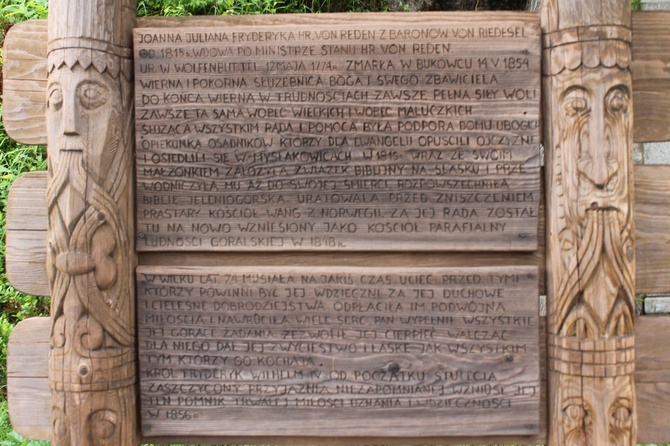 JOANNA JULIANA FRYDERYKA HR. VON REDEN Z BARONÓW VON RIEDESEL
OD 1815 R. WDOWA PO MINISTRZE STANU HR. VON REDEN
UR. W WOLFENBUTTEL 12 MAJA 1774 R. ZMARŁA W BUKOWCU 14 V 1854
WIERNA I POKORNA SŁUŻEBNICA BOGA I SWEGO ZBAWICIELA
DO KOŃCA WIERNA W TRUDNOŚCIACH ZAWSZE PEŁNA SIŁY WOLI
ZAWSZE TA SAMA WOBEC WIELKICH I WOBEC MALUCZKICH
SŁUŻĄCA WSZYSTKIM RADĄ I POMOCĄ BYŁA PODPORĄ DOMU UBOGICH
OPIEKUNKA OSADNIKÓW KTÓRZY DLA EWANGELII OPUŚCILI OJCZYZNĘ
I OSIEDLILI SIĘ W MYSŁAKOWICACH W WRAZ ZE SWOIM
MAŁŻONKIEM ZAŁOŻYŁA ZWIĄZEK BIBLIJNY NA ŚLĄSKU I PRZE
WODNICZYŁA MU AŻ DO SWOJEJ ŚMIERCI. ROZPOWSZECHNIŁA
BIBLIĘ JELENIOGÓRSKĄ. URATOWAŁA PRZED ZNISZCZENIEM
PRASTARY KOŚCIÓŁ WANG Z NORWEGII. ZA JEJ RADĄ ZOSTAŁ
TU NA NOWO WZNIESIONY JAKO KOŚCIÓŁ PARAFIALNY
LUDNOŚCI GÓRALSKIEJ W R.
W WIEKU LAT 74 MUSIAŁA NA JAKIŚ CZAS UCIEC PRZED TYMI
KTÓRZY POWINNI BYĆ JEJ WDZIĘCZNI ZA JEJ DUCHOWE
I CIELESNE DOBRODZIEJSTWA. ODPŁACIŁA IM PODWÓJNĄ
MIŁOŚCIĄ I NAWRÓCIŁA WIELE SERC. PAN WYPEŁNIŁ WSZYSTKIE
JEJ GORĄCE ŻĄDANIA, ZE ZWOLIŁ JEJ CIERPIEĆ WALCZĄC
DLA NIEGO DAŁ JEJ ZWYCIĘSTWO I ŁASKĘ JAK WSZYSTKIM
TYM KTÓRZY GO KOCHAJĄ.
KRÓL FRYDERYK WILHELM IV OD POCZĄTKU STULECIA
ZASZCZYCONY PRZYJAŹNIĄ NIEZAPOMNIANEJ WZNIÓSŁ JEJ
TEN POMNIK TRWAŁEJ MIŁOŚCI UZNANIA I WDZIĘCZNOŚCI
W 1856 R.